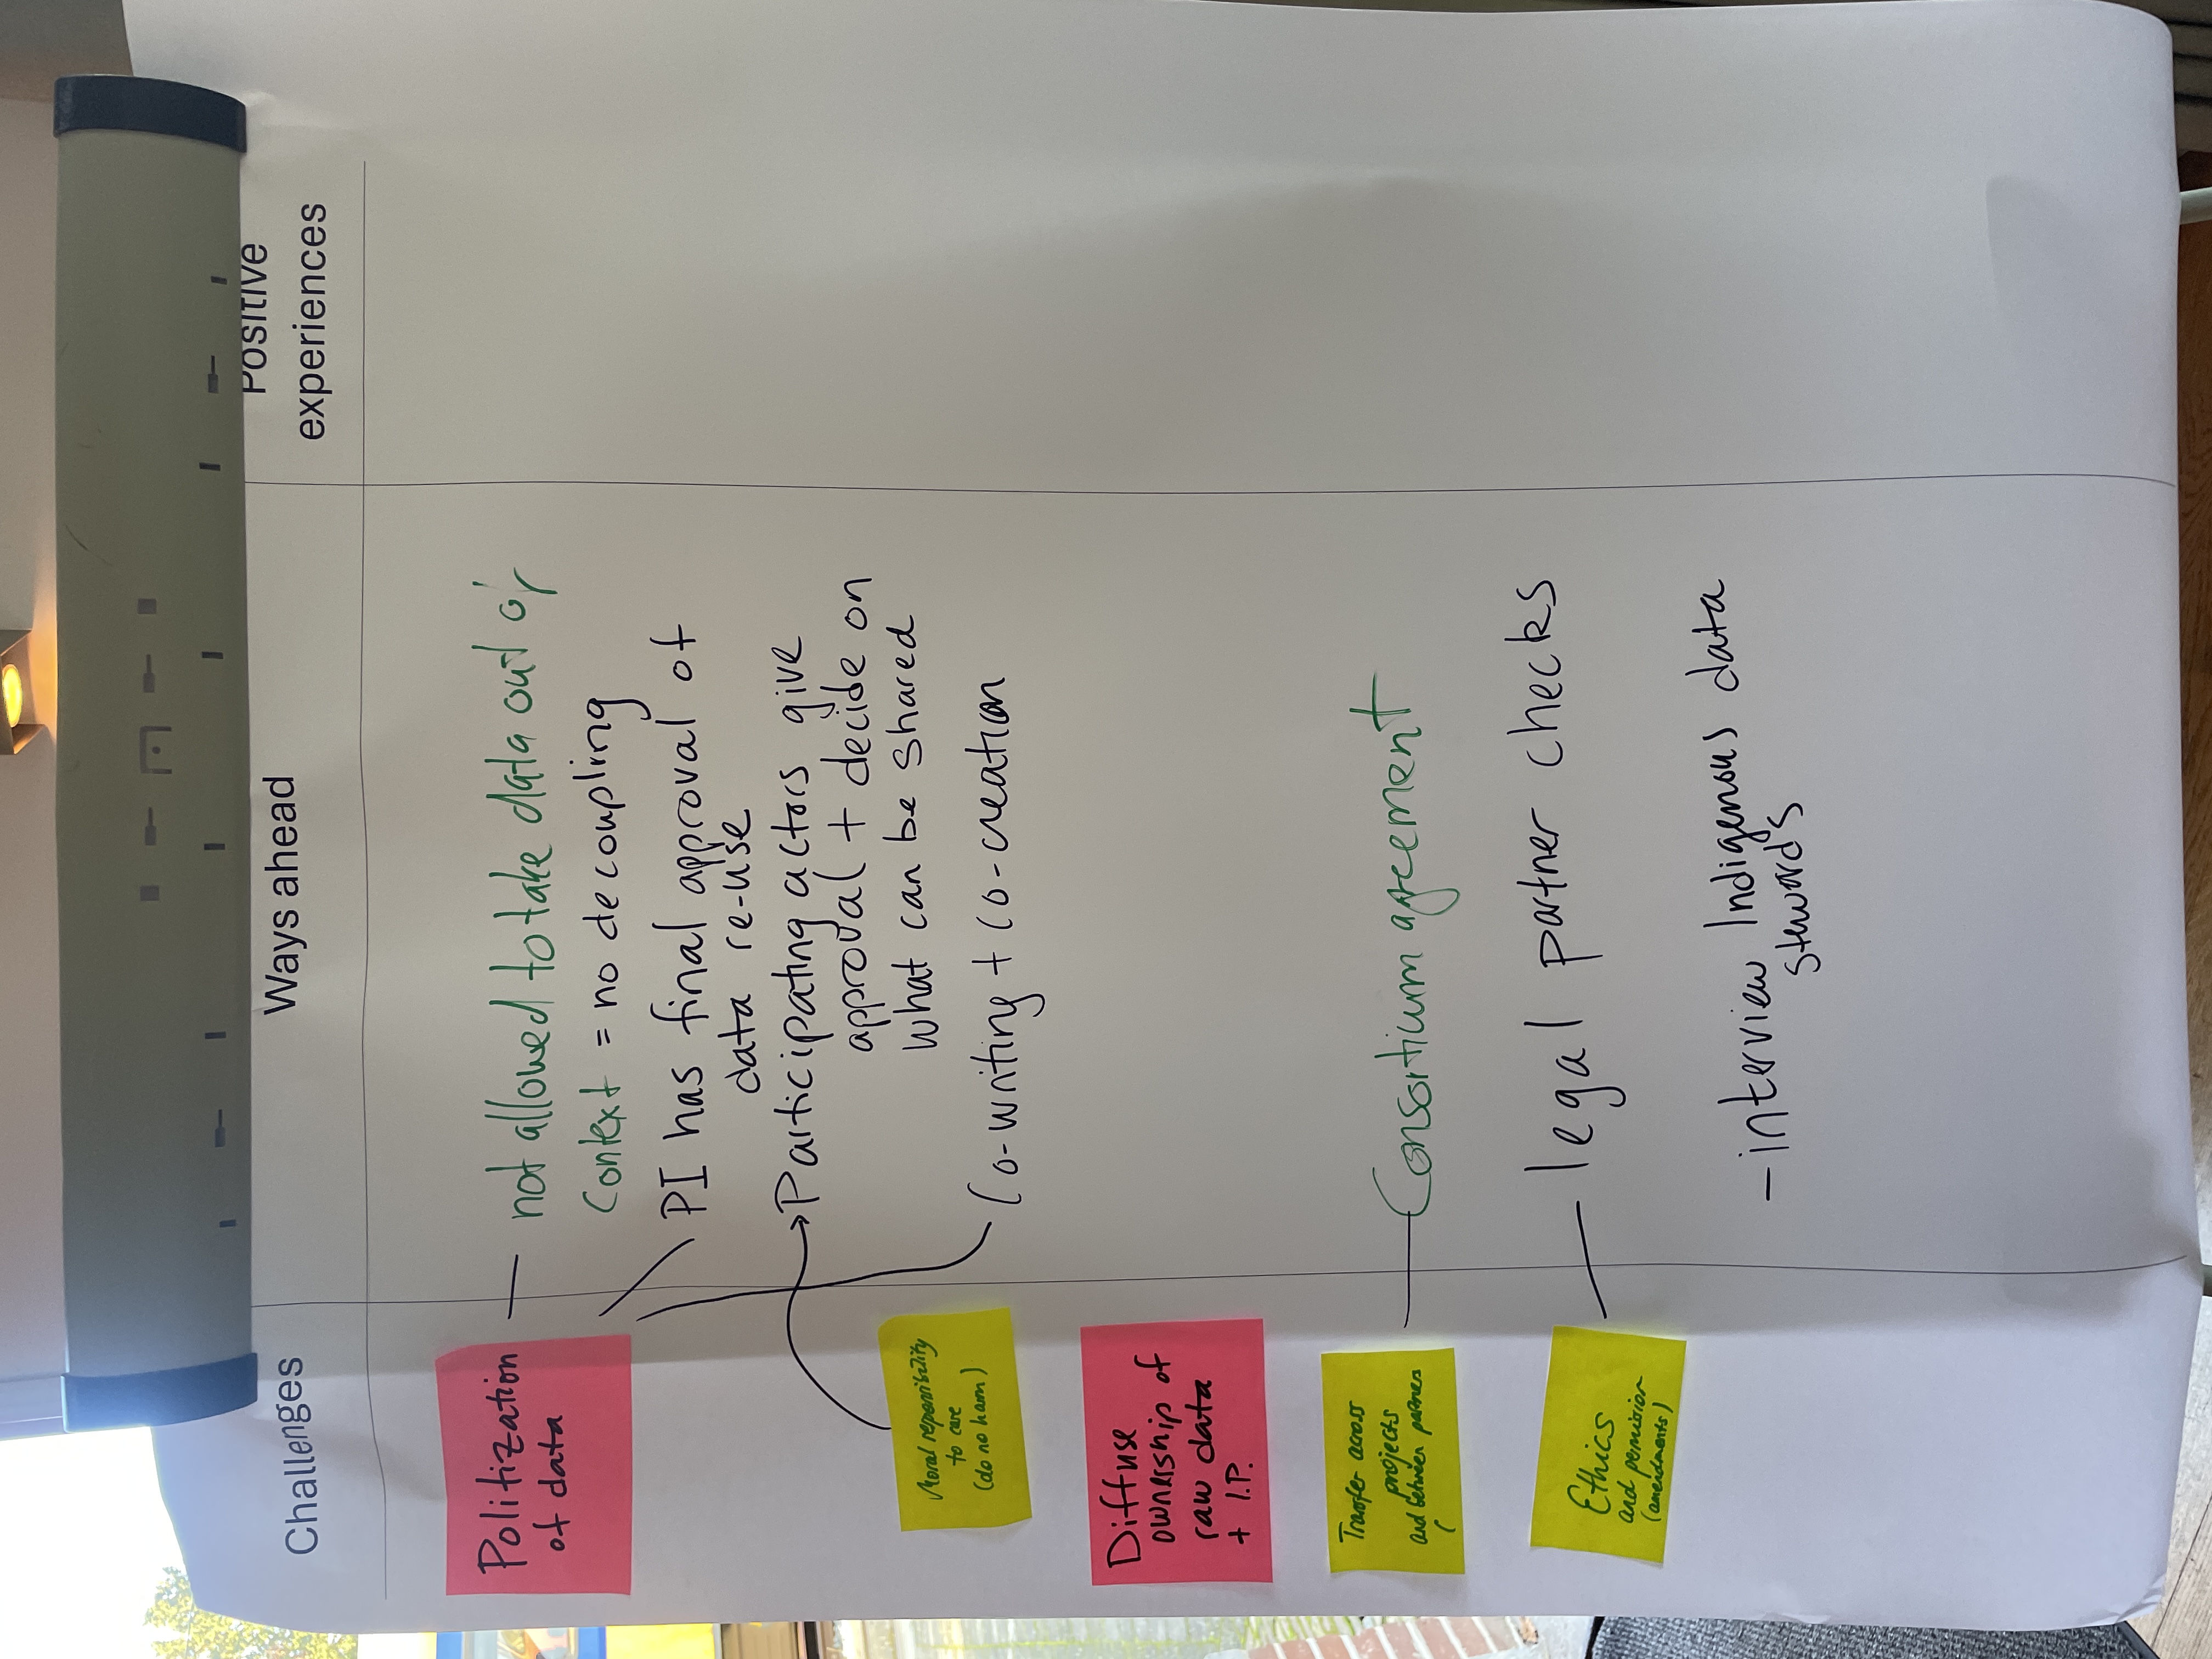 Challenges
Ways ahead
Positive
experiences
Politization
of data
not allowed to take data out of
Context = no decoupling
PI has final approval of
data re-use
Participating actors give
approval + decide on
what can be shared
Moral responsibility
to care
(do no harm)
Co-writing + co-creation
Diffuse
ownership of
raw data
+ I.P.
Transfer across
projects
and between partners
(
Consortium agreement
legal partner checks
Ethics
and permission
(amendments)
- interview Indigenous data
stewards